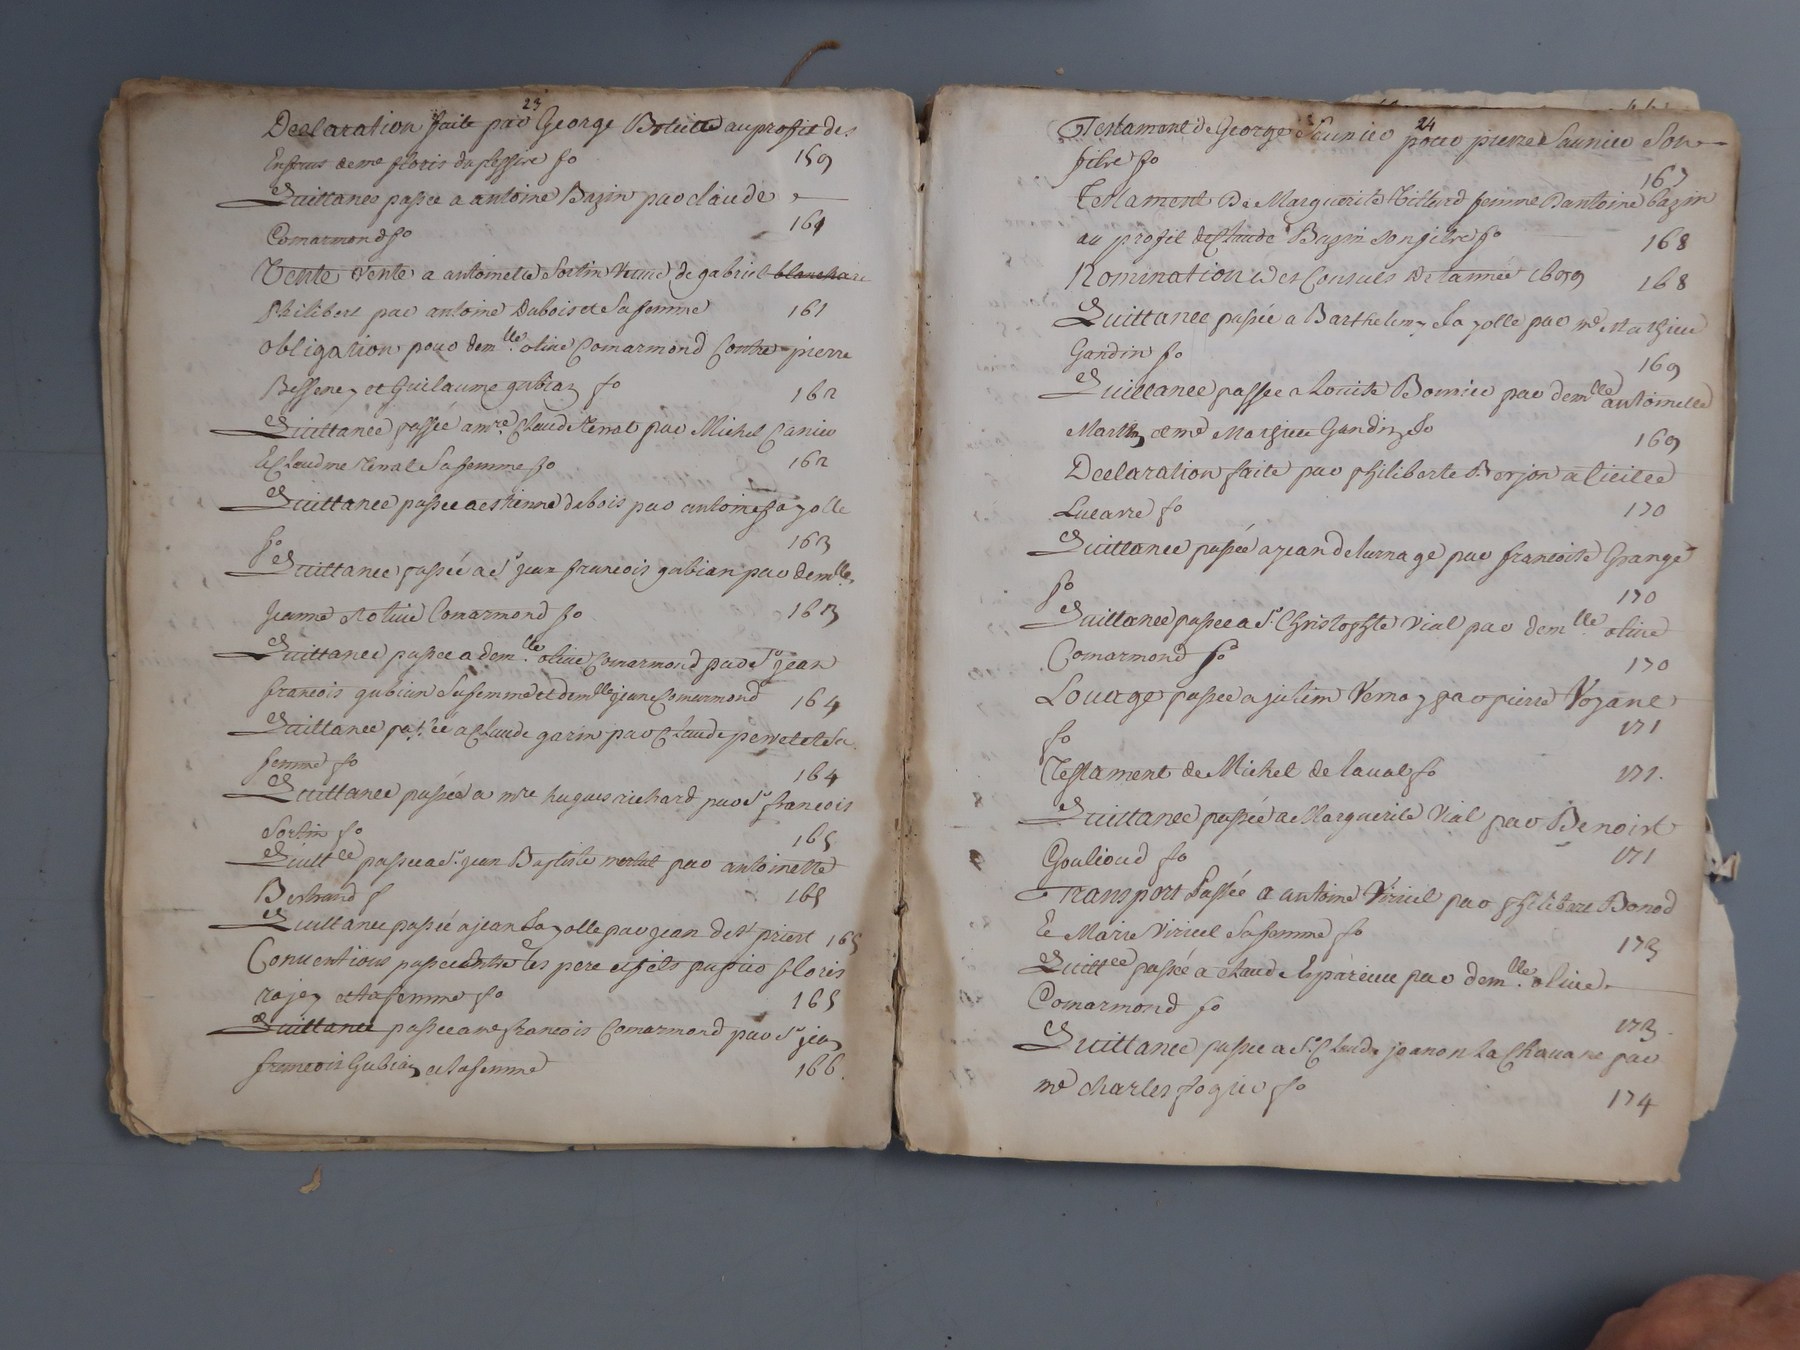 23
Declaration faite par George au proffit des
Enfans de me floris dupessire fo 159
Quittance passee a antoine Bazin par claude
Comarmond fo 161
Vente Vente a antoinette Sortin Veuve de gabriel
Philibert par antoine Dubois et Sa femme 161
obligation pour demlle olive Comarmond Contre pierre
Bessenay et Guilaume gubian fo 162
Quittance passée a mre Claude Renat par Michel Canier
et Claudine Renat Sa femme fo 162
Quittance passee a estienne dubois par antoine fayolle
fo 163
Quittance passée a Sr jean francois gubian par demlle
jeanne et olive Comarmond fo 163
Quittance passee a demlle olive Comarmond par Sr jean
francois gubian Sa femme et demlle jeane Comarmond 164
Quittance passée a Claude garin par Claude perret et Sa
femme fo 164
Quittance passée a mre hugues richard par Sr francois
Sortin fo 165
Quittce passee a Sr jean Baptiste par antoinette
Bertrand f 165
Quittance passée a jean fayolle par jean de st priest 165
Conventions passee Entre les pere et fils floris
et sa femme fo 165
Quittance passee a me francois Comarmond par Sr jean
francois Gubian et sa femme 166
24
Testament de George Saunier pour pierre Saunier Son
filre fo 167
Testament De Marguerite femme D antoine bazin
au profit de Claude Bazin son filre fo 168
Nomination des Consuls de lannée 1699 168
Quittance passée a Barthelemy fayolle par me Mathieu
Gandin fo 169
Quittance passée a Louise Bournier par demlle antoinette
Martin et me Mathieu Gandin fo 169
Declaration faite par philiberte Berjon a
Lucarre fo 170
Quittance passée a jean delurnage par francoise Grange
fo 170
Quittance passee a Sr Christophle Vial par demlle olive
Comarmond fo 170
Louage passee a julien Vernay par pierre Voyane
fo 171
Testament de Michel de laval fo 171
Quittance passée a Marguerite Vial par Benoist
Goulioud fo 171
Transport Passée a antoine Viricel par philibert Bonod
Et Marie Viricel Sa femme fo 173
Quittce passée a claude par demlle olive
Comarmond fo 173
Quittance passee a Sr Claude jeanon La Chavane par
me charles fo 174